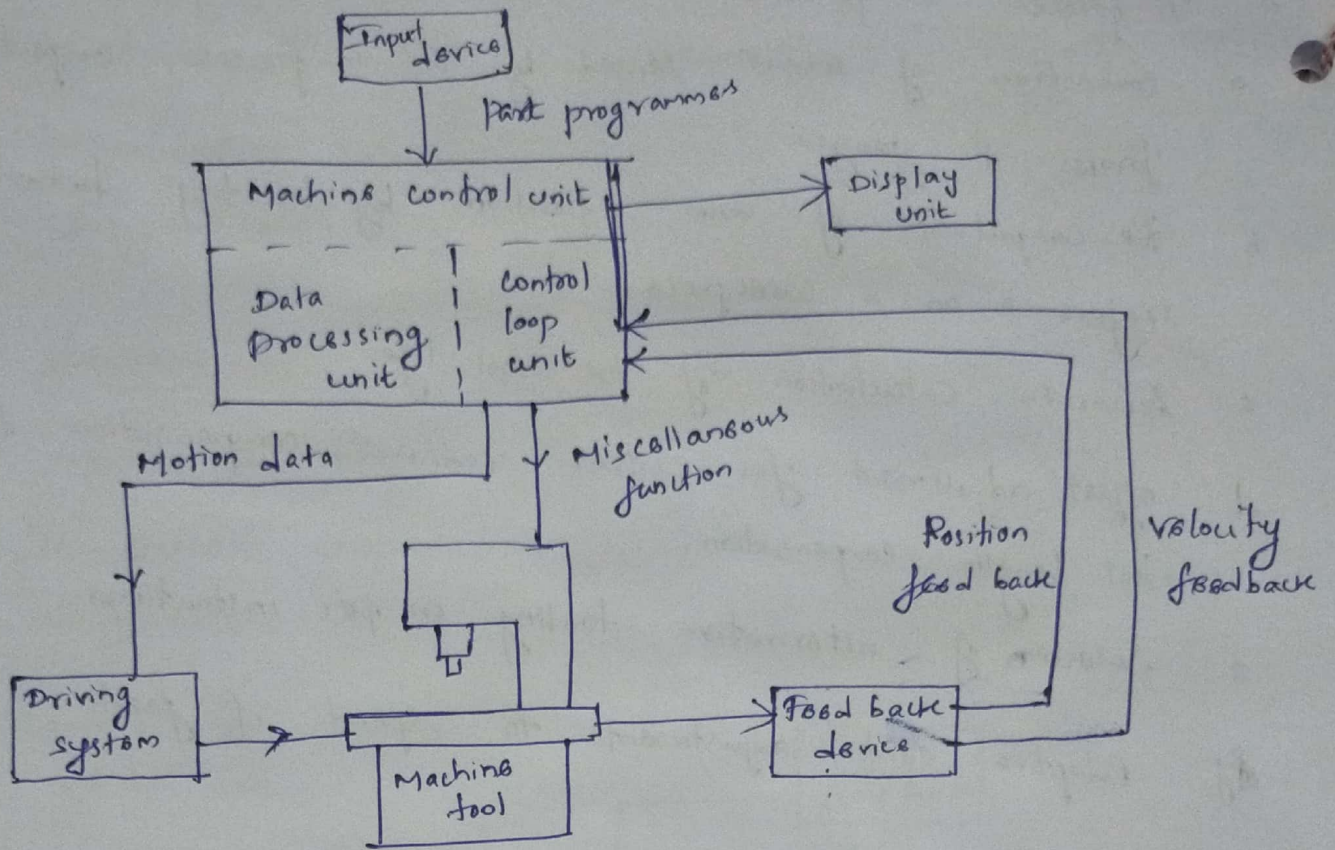 Input
device
part programmes
Machine control unit
Display
unit
Data
processing
unit
control
loop
unit
Motion data
Miscellaneous
function
Position
feed back
velocity
feedback
Driving
system
Feed back
device
Machine
tool